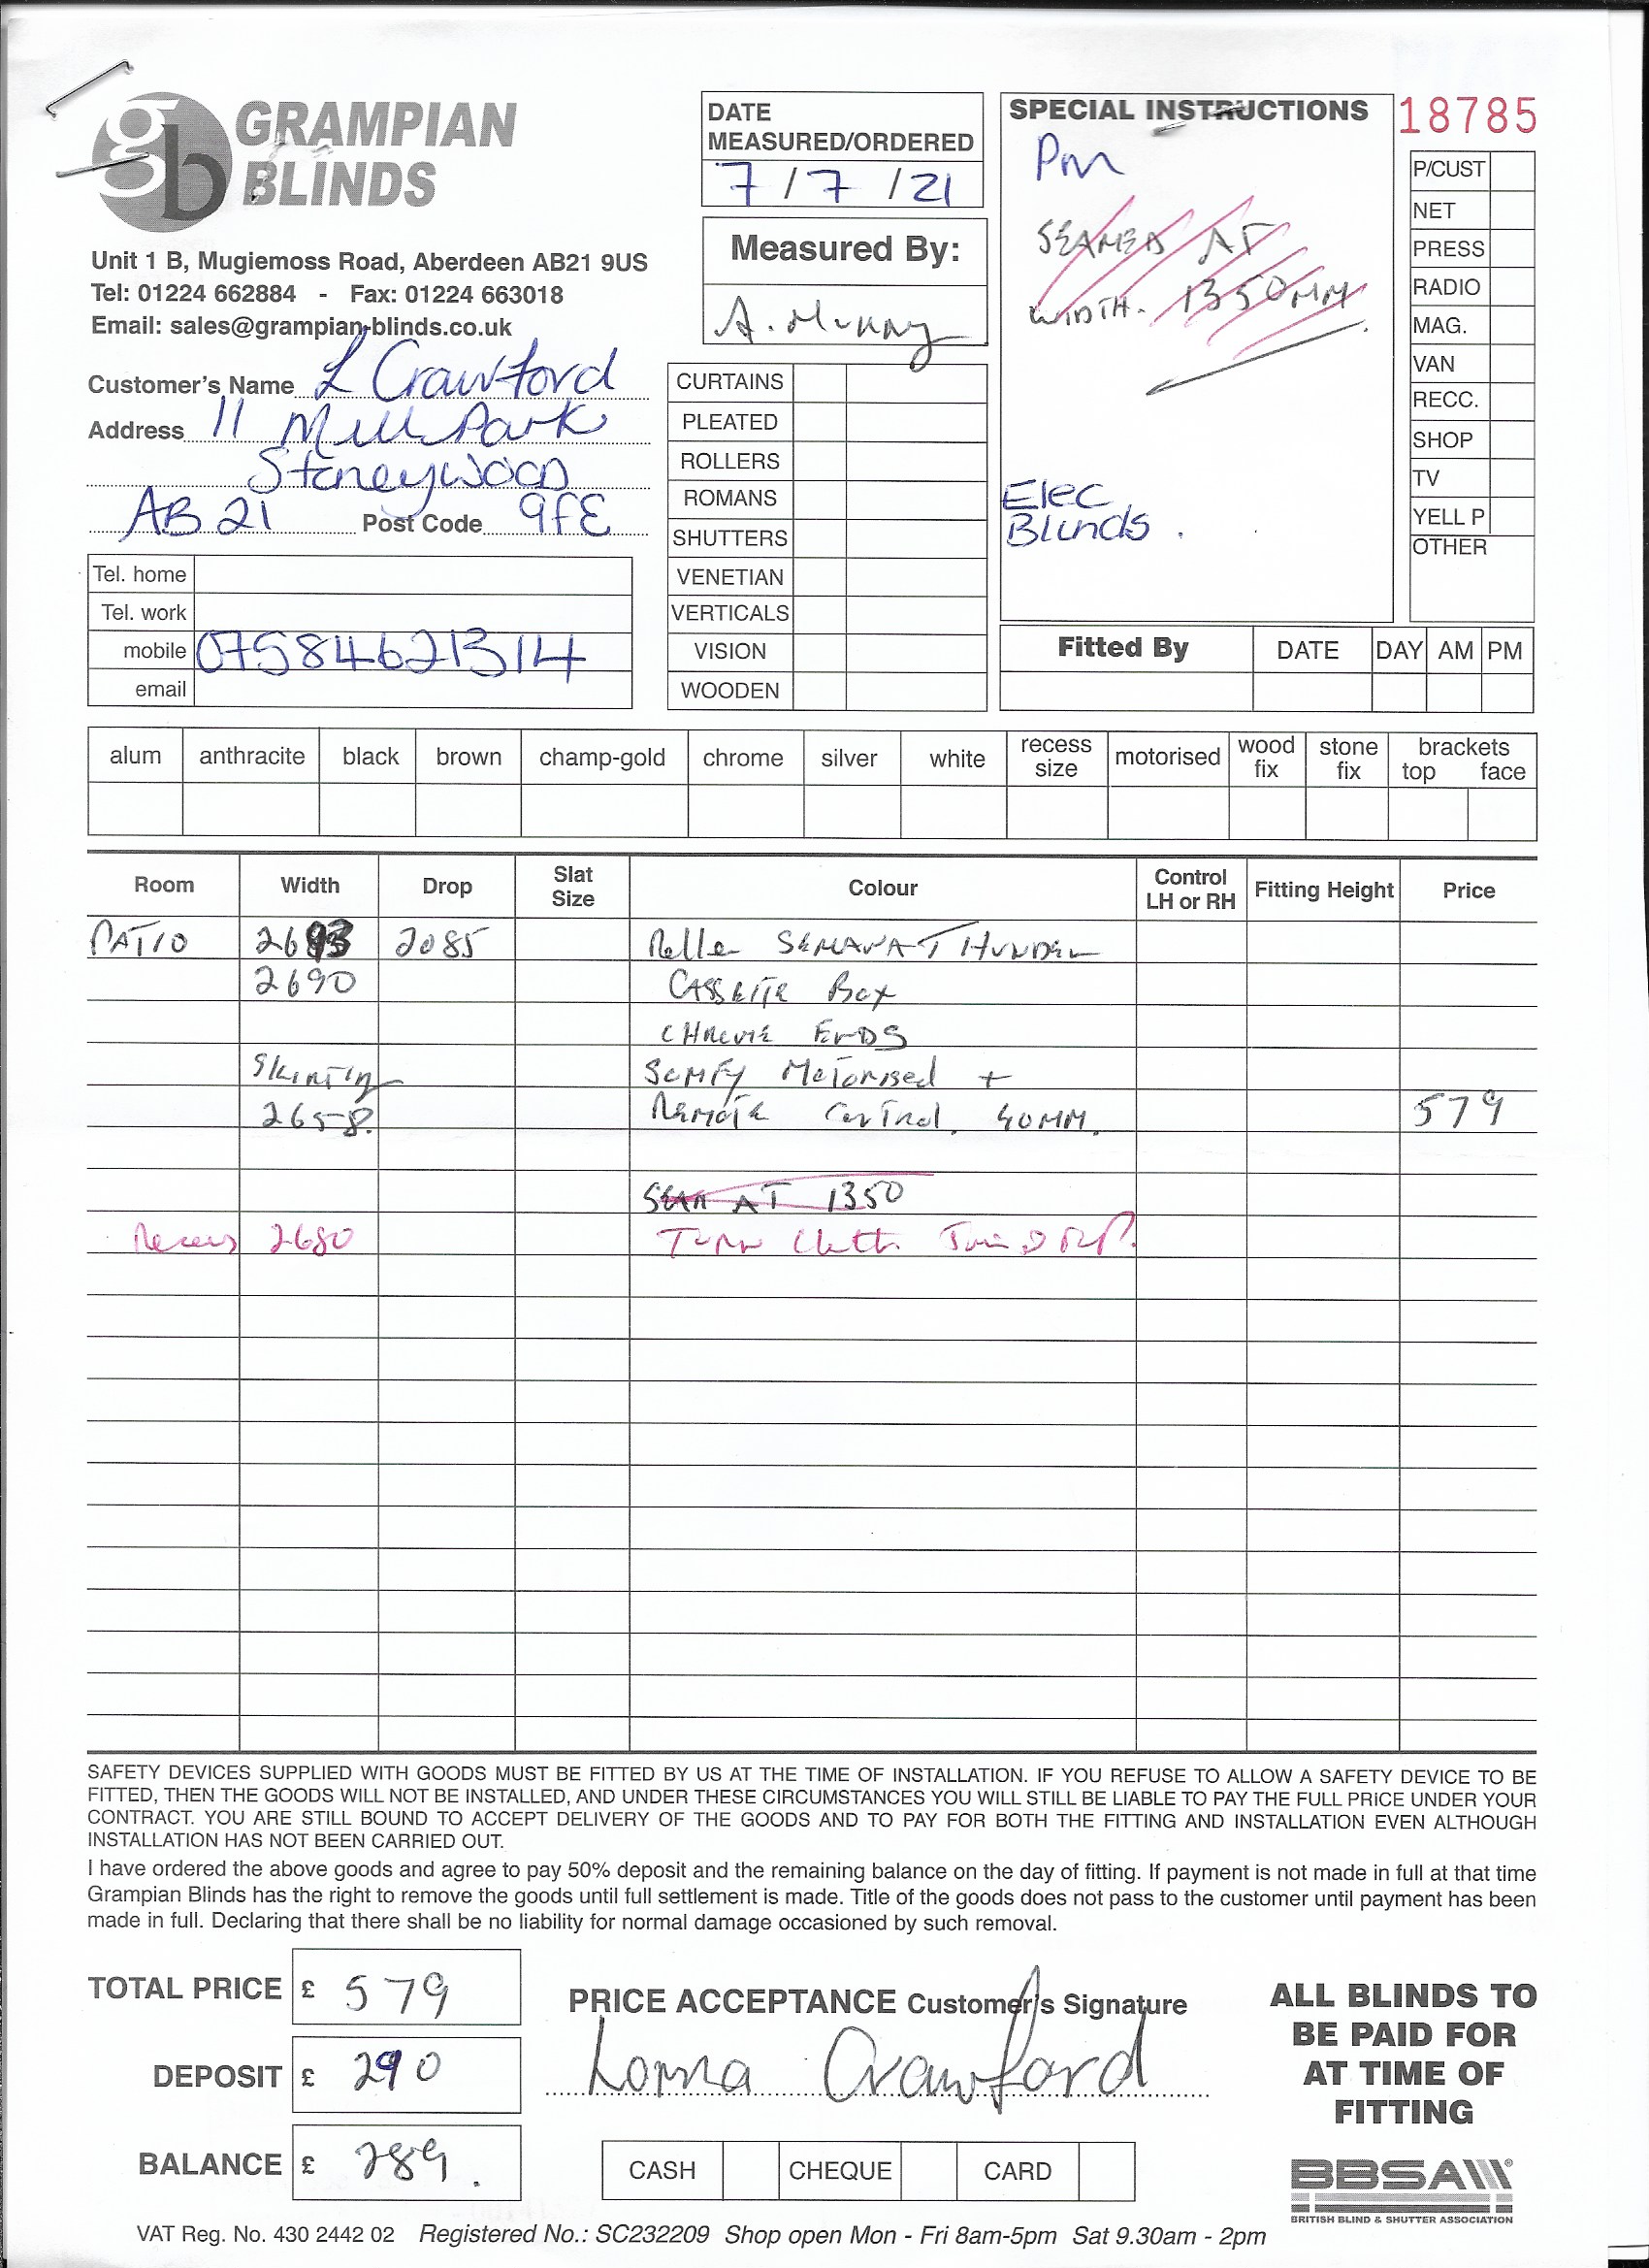 GRAMPIAN
BLINDS
Unit 1 B, Mugiemoss Road, Aberdeen AB21 9US
Tel: 01224 662884 - Fax: 01224 663018
Email: sales@grampian-blinds.co.uk
Customer's Name L Crawford
Address 11 Mill Park
Stoneywood
AB21 Post Code 9FE
Tel. home
Tel. work
mobile 07584621314
email
DATE
MEASURED/ORDERED
7/7/21
Measured By:
A. Murray
CURTAINS
PLEATED
ROLLERS
ROMANS
SHUTTERS
VENETIAN
VERTICALS
VISION
WOODEN
SPECIAL INSTRUCTIONS
Pm
SEAMED AT
WIDTH. 1350MM
Elec
Blinds.
18785
P/CUST
NET
PRESS
RADIO
MAG.
VAN
RECC.
SHOP
TV
YELL P
OTHER
Fitted By DATE DAY AM PM
alum anthracite black brown champ-gold chrome silver white recess size motorised wood fix stone fix brackets top face
Room Width Drop Slat Size Colour Control LH or RH Fitting Height Price
PATIO 2693 2085 Roller
2690 CASSETTE Box
CHROME ENDS
Skirting SOMFY Motorised +
2658. Remote Control. 40MM. 579
SEAM AT 1350
Recess 2680 Turn Cloth
SAFETY DEVICES SUPPLIED WITH GOODS MUST BE FITTED BY US AT THE TIME OF INSTALLATION. IF YOU REFUSE TO ALLOW A SAFETY DEVICE TO BE
FITTED, THEN THE GOODS WILL NOT BE INSTALLED, AND UNDER THESE CIRCUMSTANCES YOU WILL STILL BE LIABLE TO PAY THE FULL PRICE UNDER YOUR
CONTRACT. YOU ARE STILL BOUND TO ACCEPT DELIVERY OF THE GOODS AND TO PAY FOR BOTH THE FITTING AND INSTALLATION EVEN ALTHOUGH
INSTALLATION HAS NOT BEEN CARRIED OUT.
I have ordered the above goods and agree to pay 50% deposit and the remaining balance on the day of fitting. If payment is not made in full at that time
Grampian Blinds has the right to remove the goods until full settlement is made. Title of the goods does not pass to the customer until payment has been
made in full. Declaring that there shall be no liability for normal damage occasioned by such removal.
TOTAL PRICE £ 579
DEPOSIT £ 290
BALANCE £ 289.
PRICE ACCEPTANCE Customer's Signature
Lorna Crawford
CASH CHEQUE CARD
ALL BLINDS TO
BE PAID FOR
AT TIME OF
FITTING
BBSA
BRITISH BLIND & SHUTTER ASSOCIATION
VAT Reg. No. 430 2442 02 Registered No.: SC232209 Shop open Mon - Fri 8am-5pm Sat 9.30am - 2pm